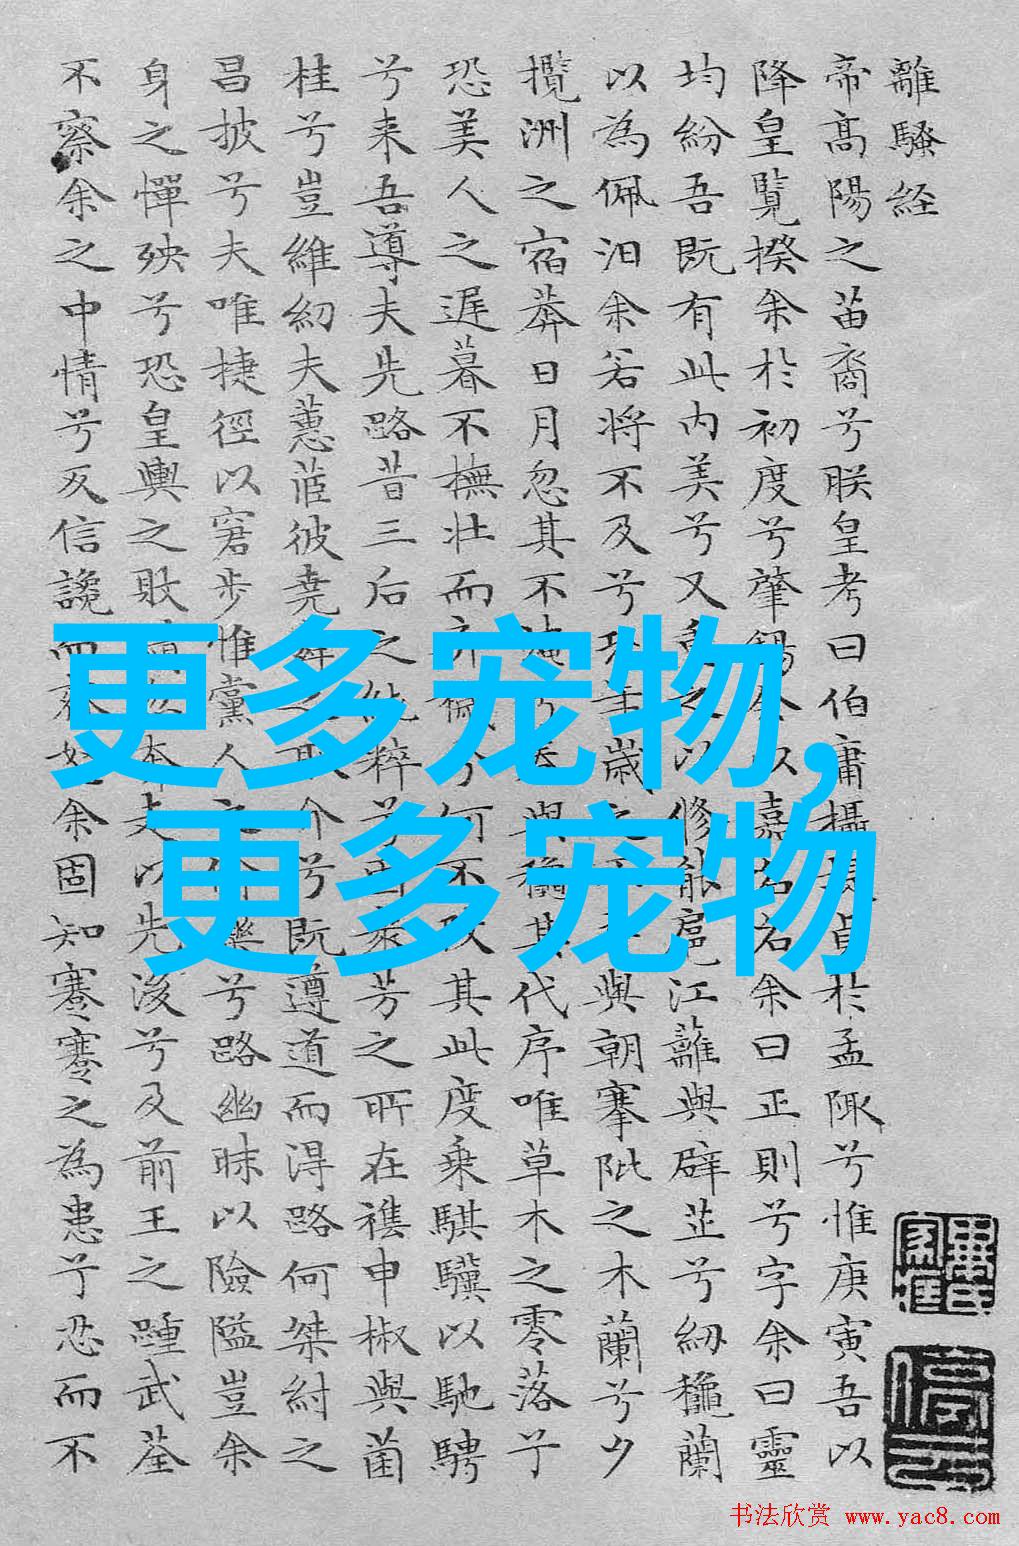 離騷経
帝高陽之苗裔兮朕皇考曰伯庸攝提貞於孟陬兮惟庚寅吾以
降皇覽揆余於初度兮肇錫余以嘉名名余曰正則兮字余曰靈
均紛吾既有此内美兮又重之以修能扈江蘺與辟芷兮紉穐蘭
以為佩汨余若將不及兮恐年歲之不吾與朝搴阰之木蘭兮夕
攬洲之宿莽日月忽其不淹兮春與穐其代序唯草木之零落兮
恐美人之遲暮不撫壯而棄穢兮何不改其此度乗騏驥以馳騁
兮来吾導夫先路昔三后之純粹兮固衆芳之所在雜申椒與菌
桂兮豈維紉夫蕙茝彼堯舜之耿介兮既遵道而得路何桀紂之
昌披兮夫唯捷徑以窘步惟黨人之偷樂兮路幽昧以險隘豈余
身之憚殃兮恐皇輿之敗績忽奔走以先後兮及前王之踵武荃
不察余之中情兮反信讒而齌怒余固知謇謇之為患兮忍而不
更多宠物,
更多宠物
书法欣赏 www.yac8.com